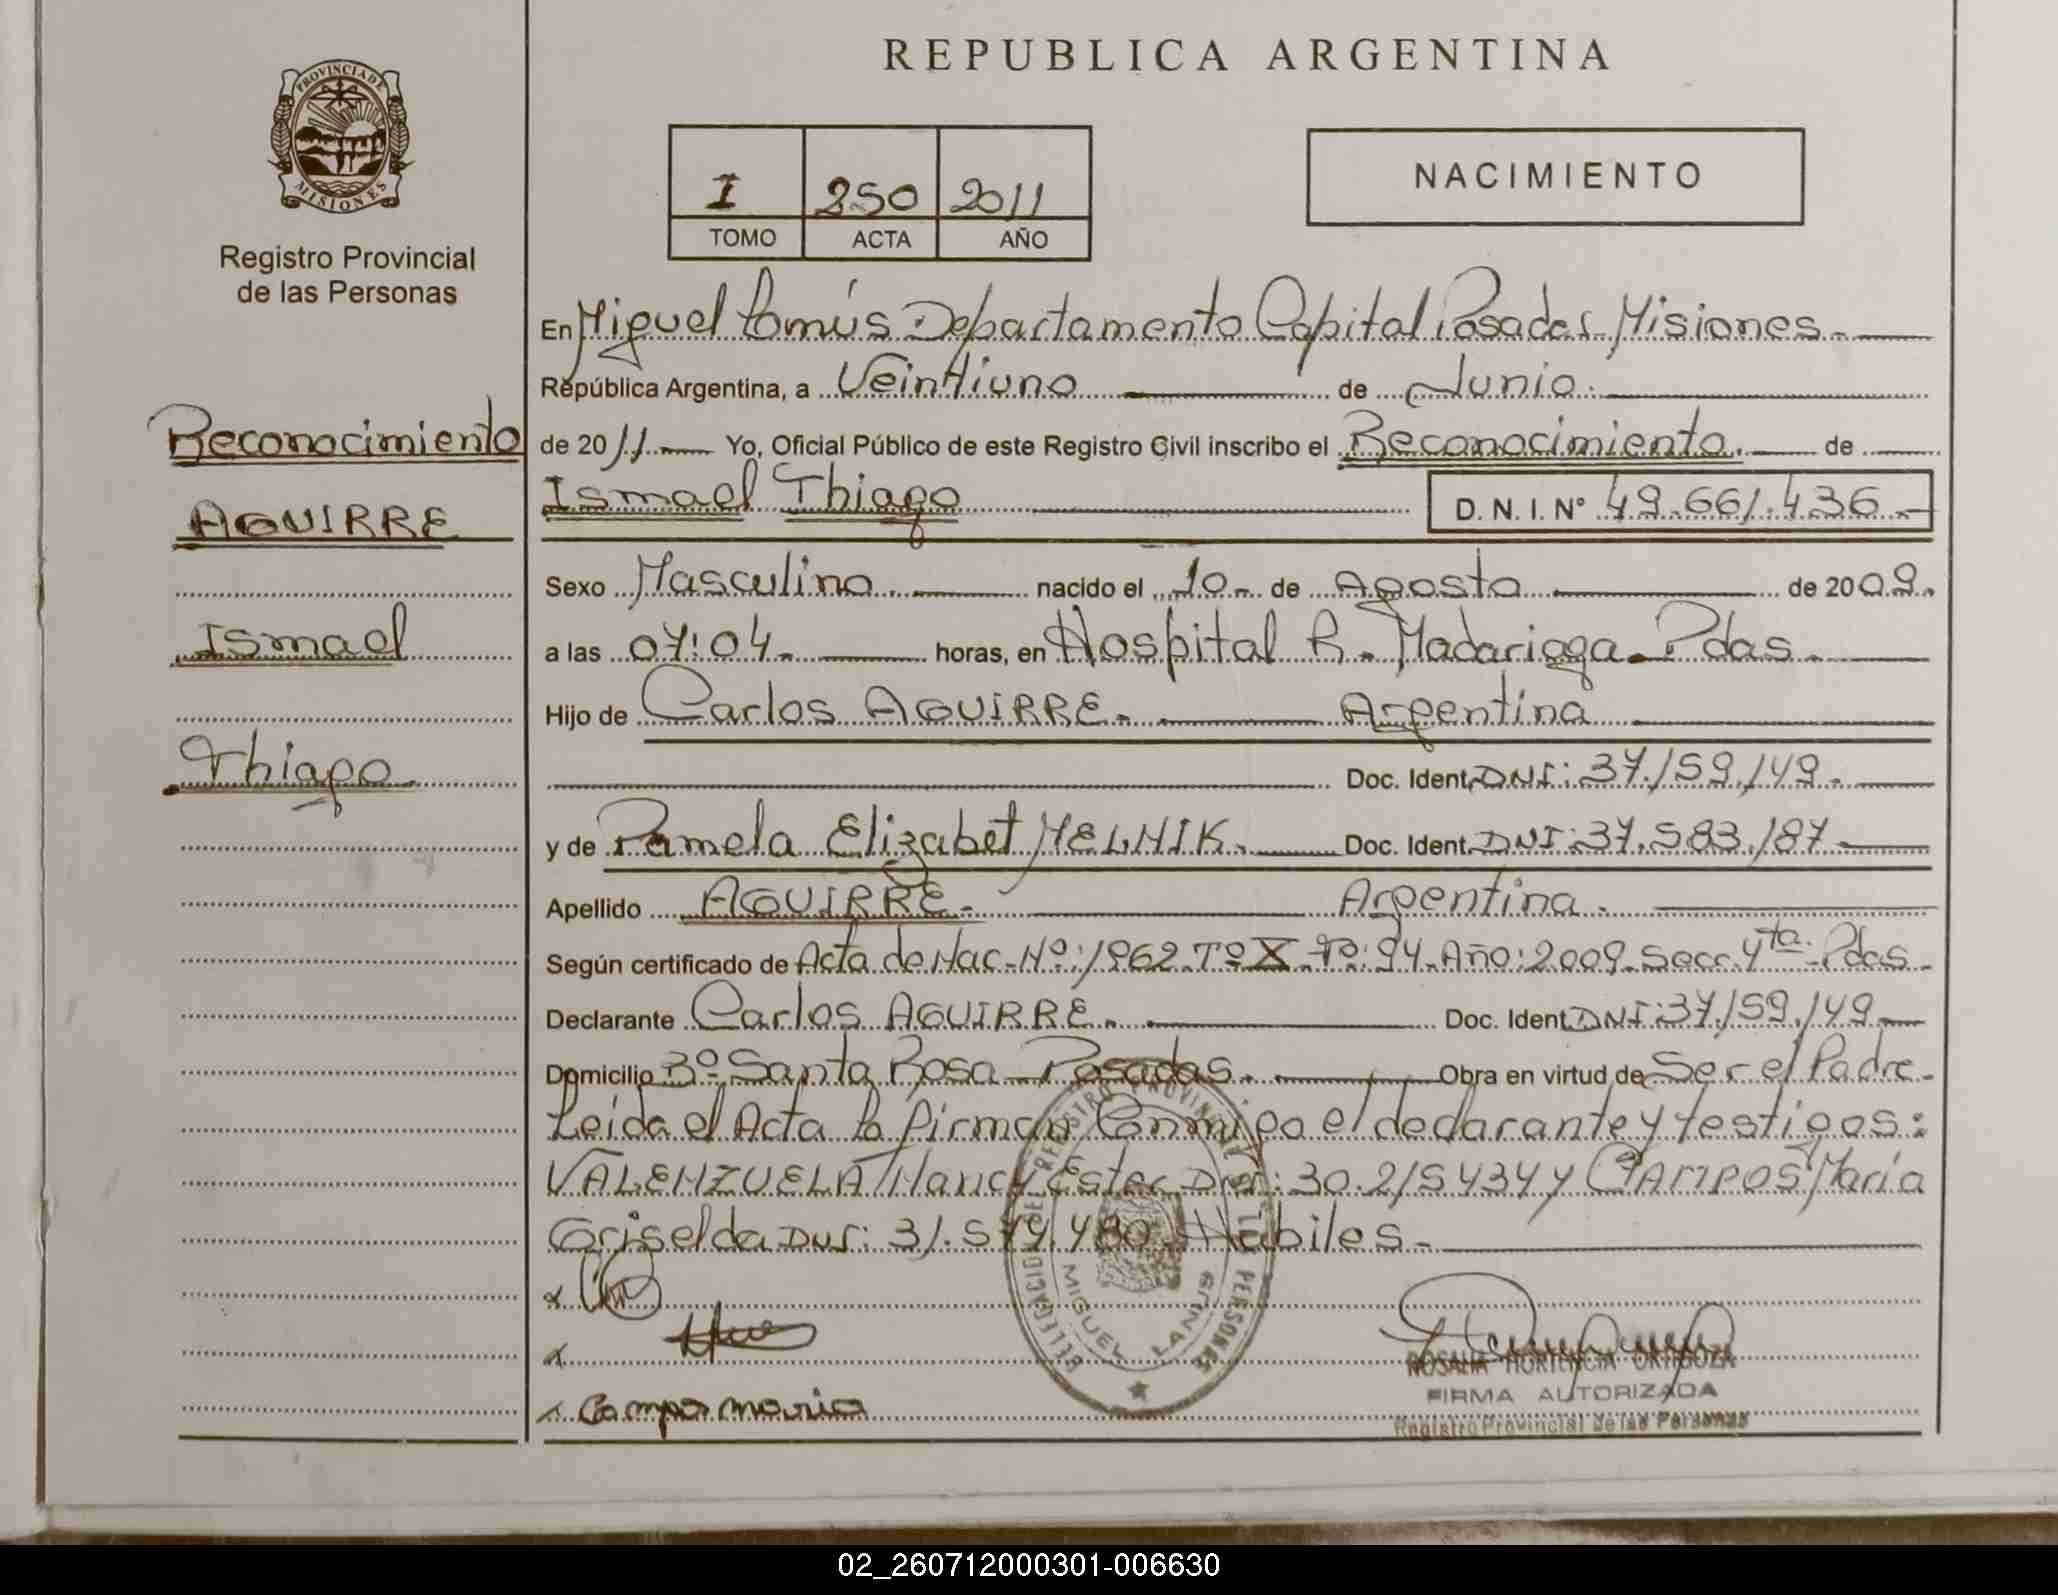 REPUBLICA ARGENTINA
PROVINCIA DE MISIONES
Registro Provincial
de las Personas
I 250 2011
TOMO ACTA AÑO
NACIMIENTO
Reconocimiento
AGUIRRE
Ismael
Thiago
En Miguel Lanús Departamento Capital Posadas Misiones.
República Argentina, a Veintiuno de Junio.
de 2011 Yo, Oficial Público de este Registro Civil inscribo el Reconocimiento. de
Ismael Thiago D. N. I. Nº 49.661.436.-
Sexo Masculino. nacido el 10 de Agosto de 2009.
a las 07:04. horas, en Hospital R. Madariaga. Pdas.
Hijo de Carlos AGUIRRE. Argentina
Doc. Ident. DNI: 37.159.149.
y de Pamela Elizabet MELNIK. Doc. Ident. DNI: 37.583.187
Apellido AGUIRRE. Argentina.
Según certificado de Acta de Nac. Nº: 1962 Tº X Fº: 94 Año: 2009 Secc. 4ta. Pdas.
Declarante Carlos AGUIRRE. Doc. Ident. DNI: 37.159.149
Domicilio Bº Santa Rosa Posadas. Obra en virtud de Ser el Padre.
Leída el Acta la firman Conmigo el declarante y testigos:
VALENZUELA Nancy Ester DNI: 30.215434 y CAMPOS María
Griselda DNI: 31.574.480 Hábiles.
DELEGACION DEL REGISTRO PROVINCIAL DE LAS PERSONAS
MIGUEL LANUS
Campos maria
ROSALIA HORTENCIA ORTIGOZA
FIRMA AUTORIZADA
Registro Provincial de las Personas
02_260712000301-006630